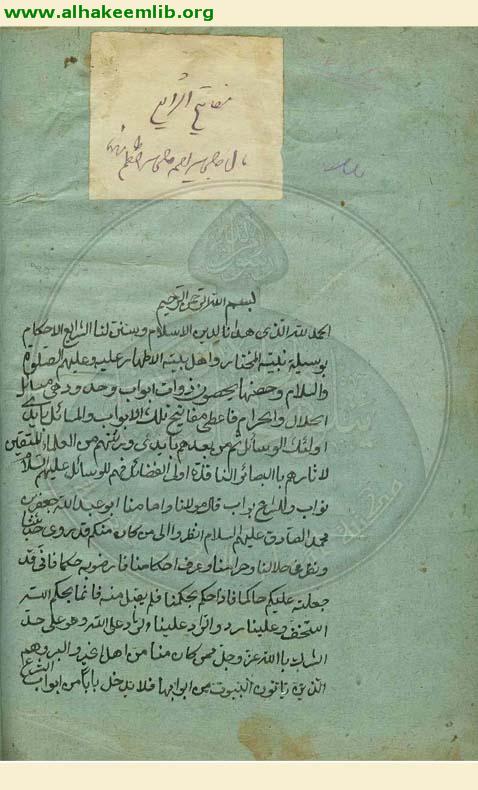 www.alhakeemlib.org
مفاتيح الشرايع
بسم الله الرحمن الرحيم
الحمد لله الذي هدانا لدين الاسلام وسنن لنا الشرايع الاحكام
بوسيلة نبيه المختار واهل بيته الاطهار عليه وعليهم الصلوة
والسلام وحصنها بحصون ذوات ابواب وحدود هي مسائل
الحلال والحرام فاعطى مفاتيح تلك الابواب والمسائل بايدي
اولئك الوسائل ثم من بعدهم بايدي ورثتهم من العلماء المقتفين
لاثارهم بالبصائر النافذة اولى الفضائل فهم للوسائل عليهم السلام
نواب قال مولانا وامامنا ابو عبد الله جعفر بن
محمد الصادق عليهم السلام انظروا الى من كان منكم قد روى حديثنا
ونظر في حلالنا وحرامنا وعرف احكامنا فارضوا به حكما فاني قد
جعلته عليكم حاكما فاذا حكم بحكمنا فلم يقبل منه فانما بحكم الله
استخف وعلينا رد والراد علينا الراد على الله وهو على حد
الشرك بالله عز وجل فمن كان منا من اهل الخير والبر وهم
الذين ياتون البيوت من ابوابها فلا يدخل بابا من ابواب الشرع